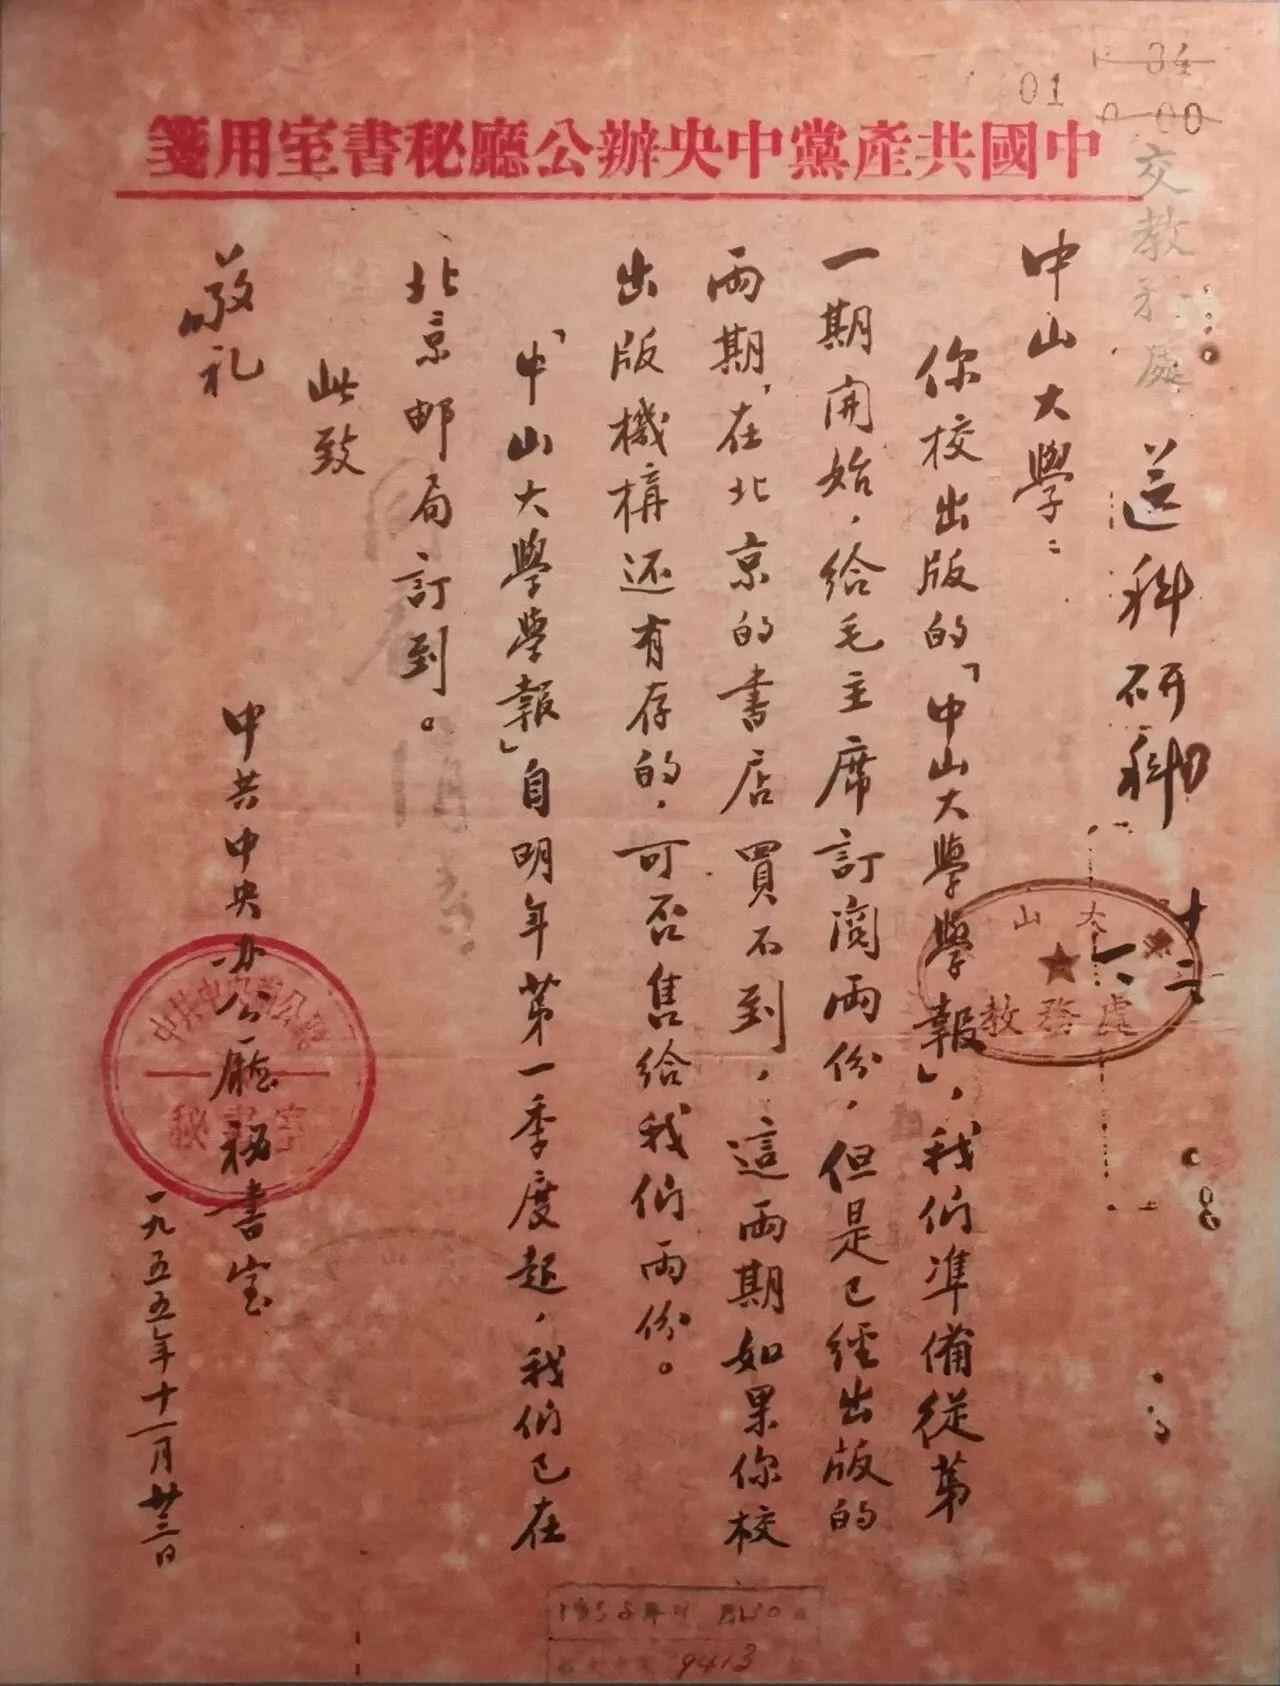 01
00
中國共產黨中央辦公廳秘書室用箋
交教務處
送科研科
中山大學：
你校出版的「中山大學學報」，我们準備從第
一期開始，給毛主席訂閱两份，但是已經出版的
兩期，在北京的書店買不到，這兩期如果你校
出版機構还有存的，可否售給我们两份。
「中山大學學報」自明年第一季度起，我们已在
北京邮局訂到。
此致
敬礼
中共中央办公廳秘書室
一九五五年十一月廿三日
中共中央辦公廳
秘書室
山大
教務處
9413